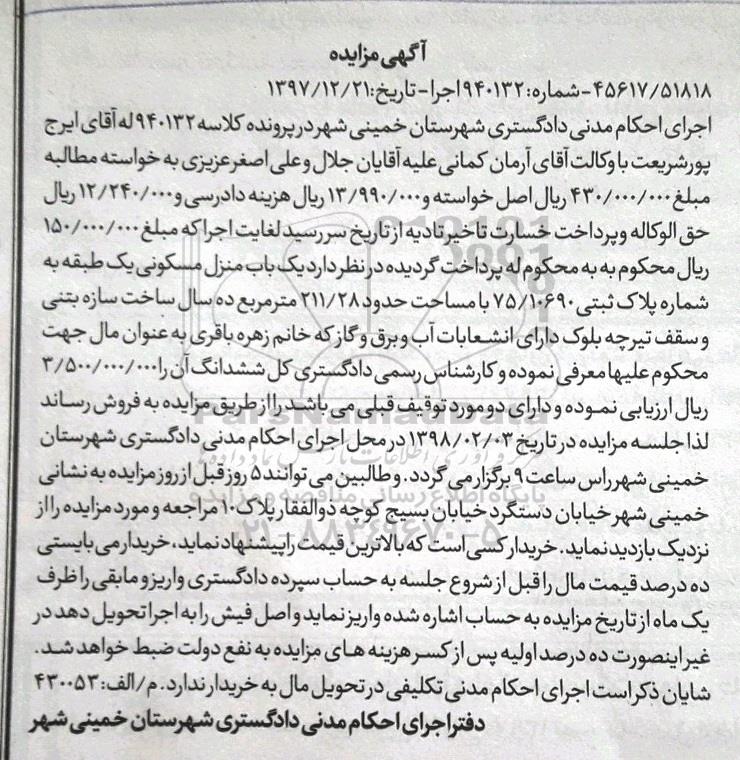 آگهی مزایده
۴۵۶۱۷/۵۱۸۱۸-شماره: ۹۴۰۱۳۲ اجرا-تاریخ: ۱۳۹۷/۱۲/۲۱
اجرای احکام مدنی دادگستری شهرستان خمینی شهر در پرونده کلاسه ۹۴۰۱۳۲ له آقای ایرج
پورشریعت با وکالت آقای آرمان کمانی علیه آقایان جلال و علی اصغر عزیزی به خواسته مطالبه
مبلغ ۴۳۰/۰۰۰/۰۰۰ ریال اصل خواسته و ۱۳/۹۹۰/۰۰۰ ریال هزینه دادرسی و ۱۲/۲۴۰/۰۰۰ ریال
حق الوکاله و پرداخت خسارت تاخیر تادیه از تاریخ سررسید لغایت اجرا که مبلغ ۱۵۰/۰۰۰/۰۰۰
ریال محکوم به به محکوم له پرداخت گردیده در نظر دارد یک باب منزل مسکونی یک طبقه به
شماره پلاک ثبتی ۷۵/۱۰۶۹۰ با مساحت حدود ۲۱۱/۲۸ مترمربع ده سال ساخت سازه بتنی
و سقف تیرچه بلوک دارای انشعابات آب و برق و گاز که خانم زهره باقری به عنوان مال جهت
محکوم علیها معرفی نموده و کارشناس رسمی دادگستری کل ششدانگ آن را ۳/۵۰۰/۰۰۰/۰۰۰
ریال ارزیابی نموده و دارای دو مورد توقیف قبلی می باشد را از طریق مزایده به فروش رساند
لذا جلسه مزایده در تاریخ ۱۳۹۸/۰۲/۰۳ در محل اجرای احکام مدنی دادگستری شهرستان
خمینی شهر راس ساعت ۹ برگزار می گردد. و طالبین می توانند ۵ روز قبل از روز مزایده به نشانی
خمینی شهر خیابان دستگرد خیابان بسیج کوچه ذوالفقار پلاک ۱۰ مراجعه و مورد مزایده را از
نزدیک بازدید نماید. خریدار کسی است که بالاترین قیمت را پیشنهاد نماید، خریدار می بایستی
ده درصد قیمت مال را قبل از شروع جلسه به حساب سپرده دادگستری واریز و مابقی را ظرف
یک ماه از تاریخ مزایده به حساب اشاره شده واریز نماید و اصل فیش را به اجرا تحویل دهد در
غیر اینصورت ده درصد اولیه پس از کسر هزینه های مزایده به نفع دولت ضبط خواهد شد.
شایان ذکر است اجرای احکام مدنی تکلیفی در تحویل مال به خریدار ندارد. م/الف: ۴۳۰۰۵۳
دفتر اجرای احکام مدنی دادگستری شهرستان خمینی شهر
ParsNamadData
پایگاه اطلاع رسانی مناقصه و مزایده
۰۲۱-۸۸۳۴۹۶۷۰-۵